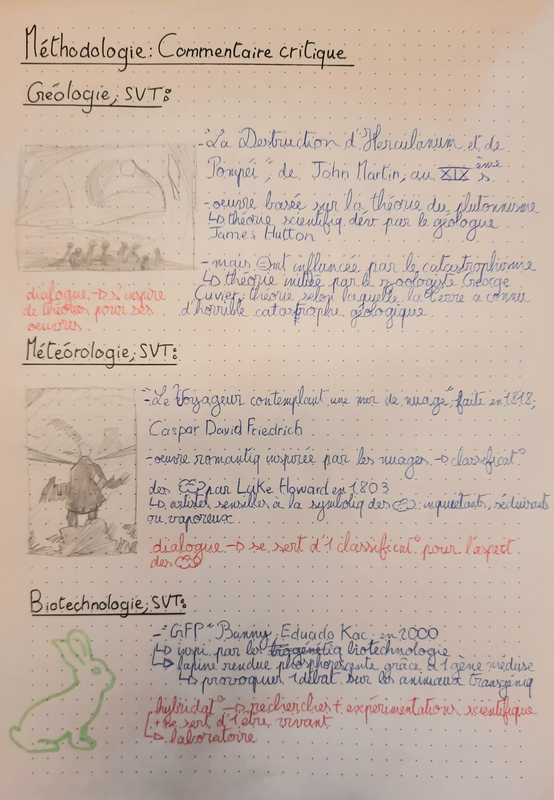 Méthodologie: Commentaire critique
Géologie, SVT:
-"La Destruction d'Herculanum et de
Pompéi", de John Martin, au XIX ème s
-oeuvre basée sur la théorie du plutonnisme
↳ théorie scientifiq dév par le géologue
James Hutton
-mais influancée par le catastrophisme
↳ théorie initiée par le zoologiste George
Cuvier, théorie selon laquelle la terre a connu
d'horrible catastrophe géologique
dialogue → s'inspire
de théories pour ses
oeuvres
Météorologie, SVT:
-"Le Voyageur contemplant une mer de nuage", faite en 1818;
Caspar David Friedrich
-oeuvre romantiq inspirée par les nuages → classificat°
des par Luke Howard en 1803
↳ artistes sensibles à la symboliq des : inquiétants, séduisants
ou vaporeux
dialogue → se sert d'1 classificat° pour l'aspect
des
Biotechnologie, SVT:
-"GFP" Bunny, Eduado Kac, en 2000
↳ inspi par la biotechnologie
↳ lapine rendue phosphorescente grâce à 1 gène méduse
↳ provoquer 1 débat sur les animaux transgéniq
hybridat° → recherches + expérimentations scientifique
+ se sert d'1 être vivant
↳ laboratoire